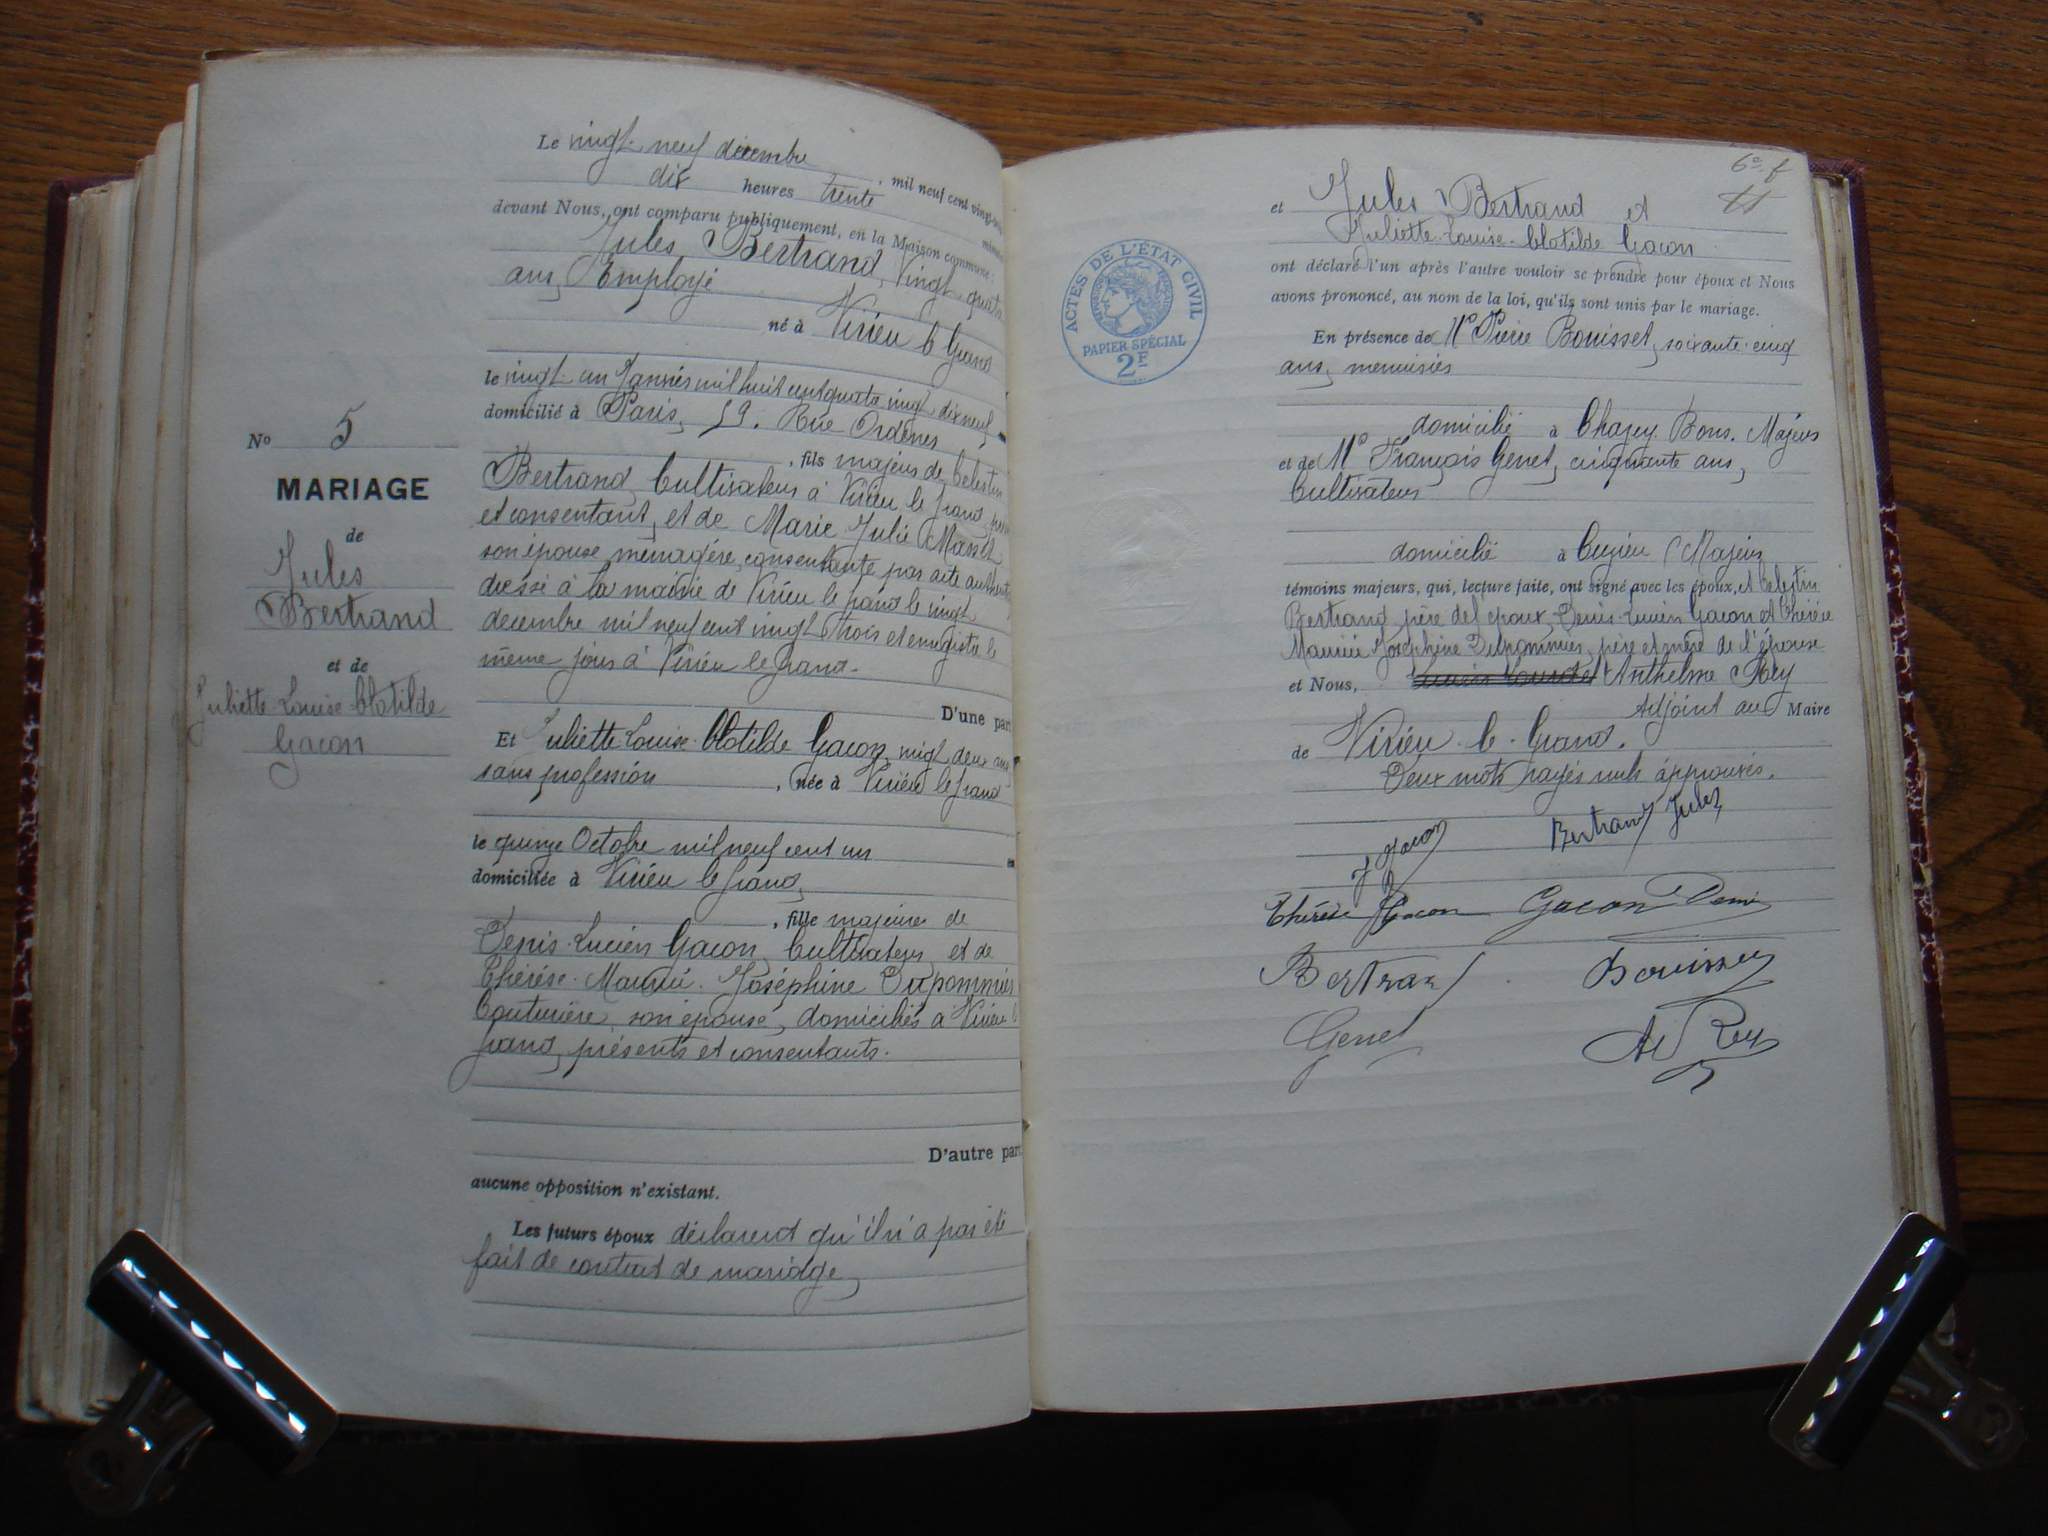 N° 5
MARIAGE
de
Jules
Bertrand
et de
Juliette-Louise-Clotilde
Gacon
Le vingt-neuf décembre, mil neuf cent vingt-
dix heures trente
devant Nous, ont comparu publiquement, en la Maison commune:
Jules Bertrand, Vingt quatre
ans, Employé
né à Virieu le Grand
le vingt-un Janvier mil huit cent quatre vingt dix neuf,
domicilié à Paris, 59. Rue Ordener
, fils majeur de Celestin
Bertrand, Cultivateur à Virieu le grand,
et consentant, et de Marie Julie Masset
son épouse ménagère, consentante par acte
dressé à la mairie de Virieu le grand le vingt
decembre mil neuf cent vingt trois et enregistré le
même jour à Virieu le Grand.
D'une part
Et Juliette-Louise-Clotilde Gacon, vingt deux ans
sans profession, née à Virieu le grand
le quinze Octobre mil neuf cent un
domiciliée à Virieu le grand,
, fille majeure de
Denis-Lucien Gacon, Cultivateur, et de
Thérèse-Joséphine Dupommier
Couturière, son épouse, domiciliés à Virieu
grand, présents et consentants.
D'autre part
aucune opposition n'existant.
Les futurs époux déclarent qu'il n'a pas été
fait de contrat de mariage,
6e f
ACTES DE L'ÉTAT CIVIL
PAPIER SPÉCIAL
2F
et Jules Bertrand et
Juliette-Louise-Clotilde Gacon
ont déclaré l'un après l'autre vouloir se prendre pour époux et Nous
avons prononcé, au nom de la loi, qu'ils sont unis par le mariage.
En présence de Mr Pierre Bouisset, soixante-cinq
ans, menuisier
domicilié à Chazey Bons. Majeur
et de Mr François Genet, cinquante ans,
Cultivateur
domicilié à Cuzieu Majeur
témoins majeurs, qui, lecture faite, ont signé avec les époux, et Celestin
Bertrand père de l'époux, Denis-Lucien Gacon et Thérèse
Joséphine Dupommier, père et mère de l'épouse
et Nous, Anthelme Rey
Adjoint au Maire
de Virieu-le-Grand.
Deux mots rayés nuls approuvés.
J Gacon Bertrand Jules
Thérèse Gacon Gacon Denis
Bertrand Bouisset
Genet A Rey